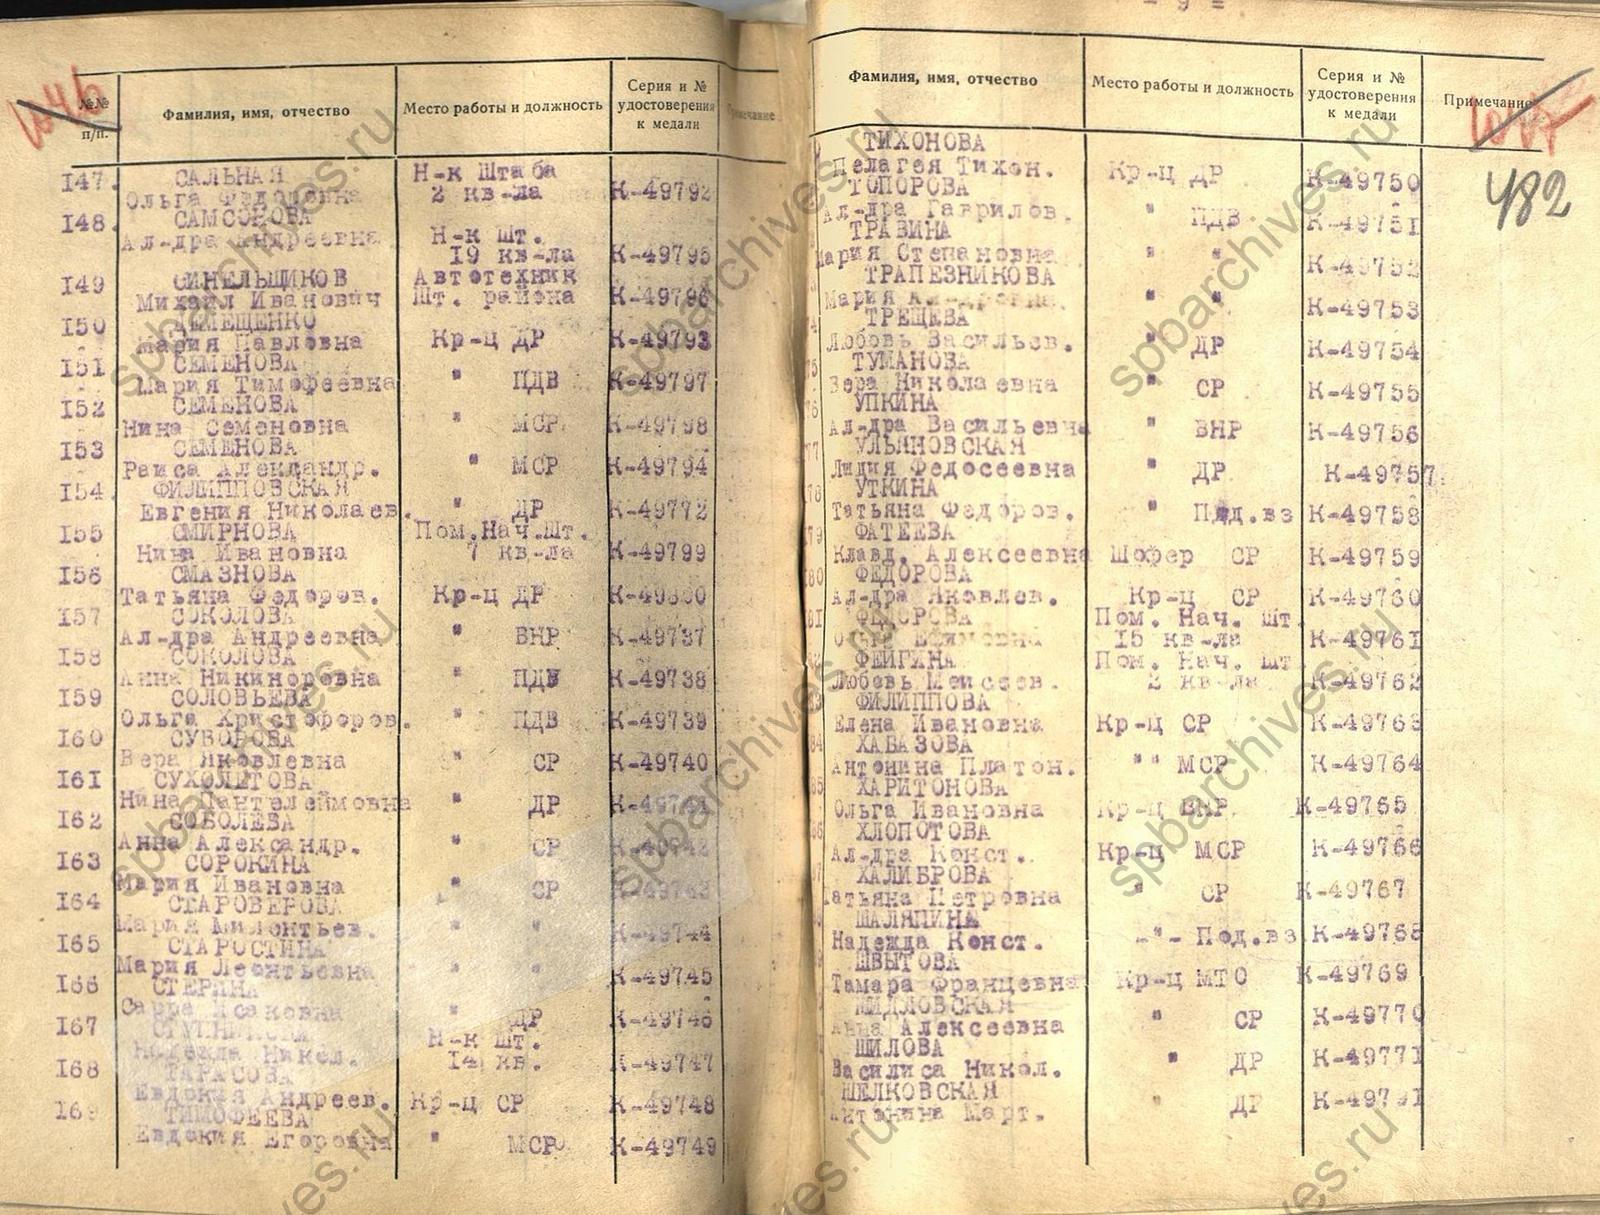 №№ п/п.
Фамилия, имя, отчество
Место работы и должность
Серия и № удостоверения к медали
147. САЛЬНАЯ Н-к Штаба
Ольга 2 кв-ла К-49792
148. САМСОНОВА
Ал-дра Андреевна Н-к Шт.
19 кв-ла К-49795
149 СИНЕЛЬЩИКОВ Автотехник
Михаил Иванович Шт. района К-49796
150 ДЕМЕЩЕНКО
Мария Павловна Кр-ц ДР К-49793
151 СЕМЕНОВА
Мария Тимофеевна " ПДВ К-49797
152 СЕМЕНОВА
Нина Семеновна " МСР К-49798
153 СЕМЕНОВА
Раиса Александр. " МСР К-49794
154. ФИЛИППОВСКАЯ
Евгения Николаев. " ДР К-49772
155 СМИРНОВА Пом.Нач.Шт.
Нина Ивановна 7 кв-ла К-49799
156 СМАЗНОВА
Татьяна Федоров. Кр-ц ДР
157 СОКОЛОВА
Ал-дра Андреевна " ВНР К-49737
158 СОКОЛОВА
Анна Никиноровна " ПДВ К-49738
159 СОЛОВЬЕВА
Ольга Христофоров. " ПДВ К-49739
160 СУВОРОВА
Вера Яковлевна " СР К-49740
161 СУХОЛЕТОВА
Нина Пантелеймовна " ДР К-49741
162 СОБОЛЕВА
Анна Александр. " СР К-49742
163 СОРОКИНА
Мария Ивановна " СР К-49743
164 СТАРОВЕРОВА
Мария " " К-49744
165 СТАРОСТИНА
Мария Леонтьевна " " К-49745
166 СТЕРИНА
Сарра Исаковна " ДР К-49746
167 Н-к Шт.
Надежда Никол. 14 кв. К-49747
168 ТАРАСОВА
Евдокия Андреев. Кр-ц СР К-49748
169 ТИМОФЕЕВА
Евдокия Егоровна " МСР К-49749
- 9 -
Фамилия, имя, отчество
Место работы и должность
Серия и № удостоверения к медали
Примечание
482
ТИХОНОВА
Пелагея Тихон. Кр-ц ДР К-49750
ТОПОРОВА
Ал-дра Гаврилов. " ПДВ К-49751
ТРАВИНА
Мария Степановна " " К-49752
ТРАПЕЗНИКОВА
Мария " " К-49753
ТРЕЩЕВА
Любовь Васильев. " ДР К-49754
ТУМАНОВА
Вера Николаевна " СР К-49755
УПКИНА
Ал-дра Васильевна " ВНР К-49756
УЛЬЯНОВСКАЯ
Лидия Федосеевна " ДР К-49757
УТКИНА
Татьяна Федоров. " Под.вз К-49758
ФАТЕЕВА
Клавд. Алексеевна Шофер СР К-49759
ФЕДОРОВА
Ал-дра Яковлев. Кр-ц СР К-49760
ФЕДОРОВА Пом. Нач. Шт.
Ольга Ефимовна 15 кв-ла К-49761
ФЕЙГИНА Пом. Нач. Шт
Любовь Моисеев. 2 кв-ла К-49762
ФИЛИППОВА
Елена Ивановна Кр-ц СР К-49763
ХАБАЗОВА
Антонина Платон. "" МСР К-49764
ХАРИТОНОВА
Ольга Ивановна Кр-ц ВНР К-49765
ХЛОПОТОВА
Ал-дра Конст. Кр-ц МСР К-49766
ХАЛИБРОВА
Татьяна Петровна " СР К-49767
ШАЛЯПИНА
Надежда Конст. -"- Под.вз К-49768
ШВЫТОВА
Тамара Францевна Кр-ц МТО К-49769
ШИДЛОВСКАЯ
Анна Алексеевна " СР К-49770
ШИЛОВА
Василиса Никол. " ДР К-49771
ШЕЛКОВСКАЯ
Антонина Март. " ДР К-49791
spbarchives.ru